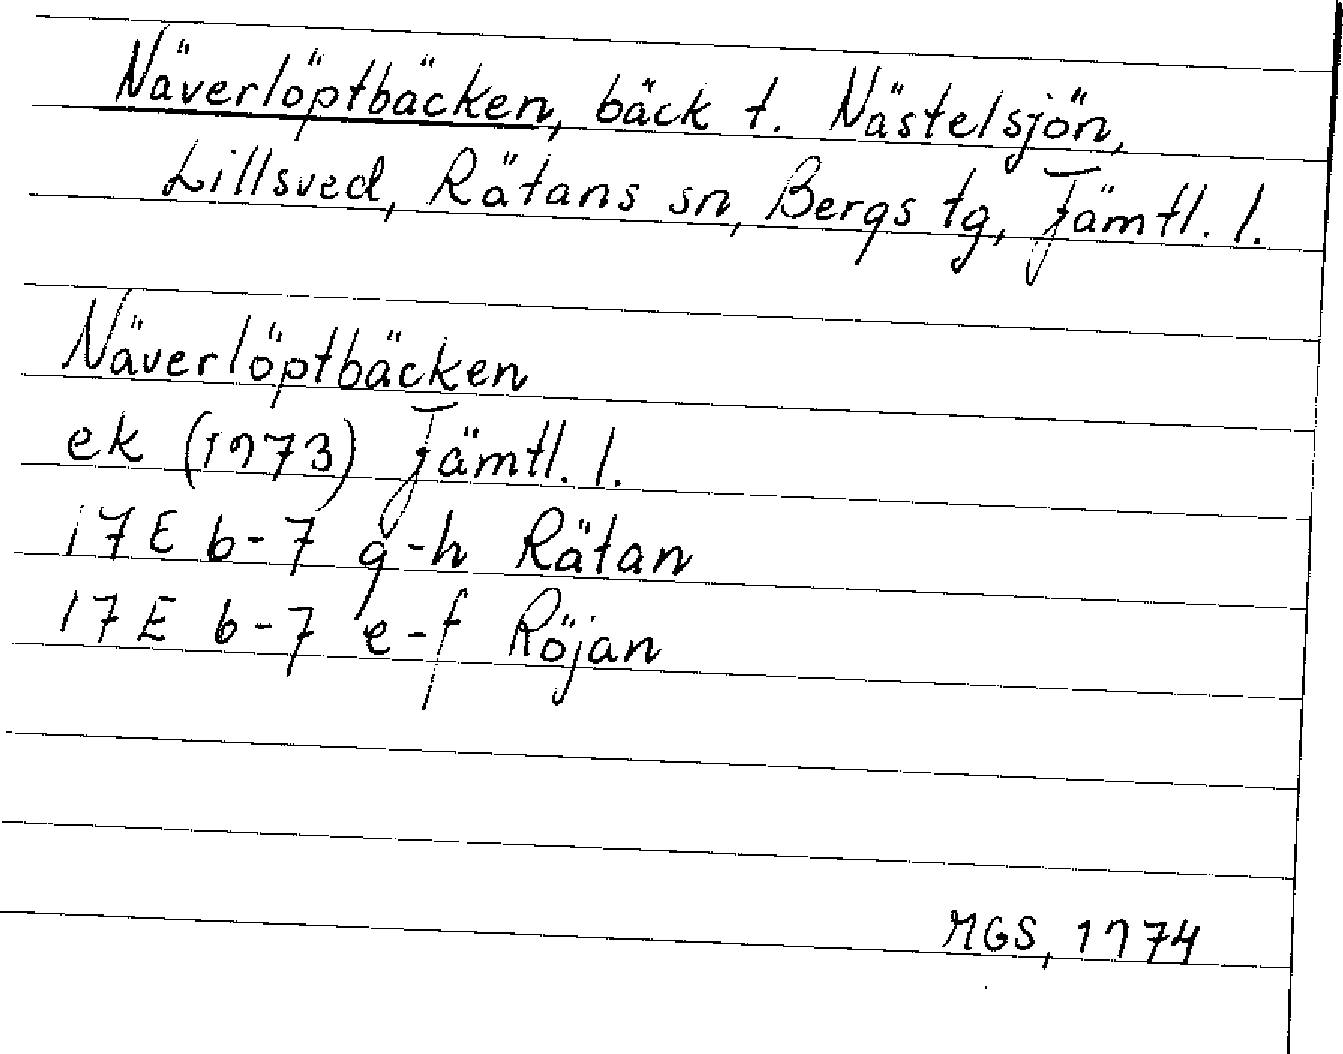 Näverlöptbäcken, bäck t. Nästelsjön,
Lillsved, Rätans sn, Bergs tg, Jämtl. l.
Näverlöptbäcken
ek (1973) Jämtl. l.
17E 6-7 g-h Rätan
17E 6-7 e-f Röjan
MGS, 1974